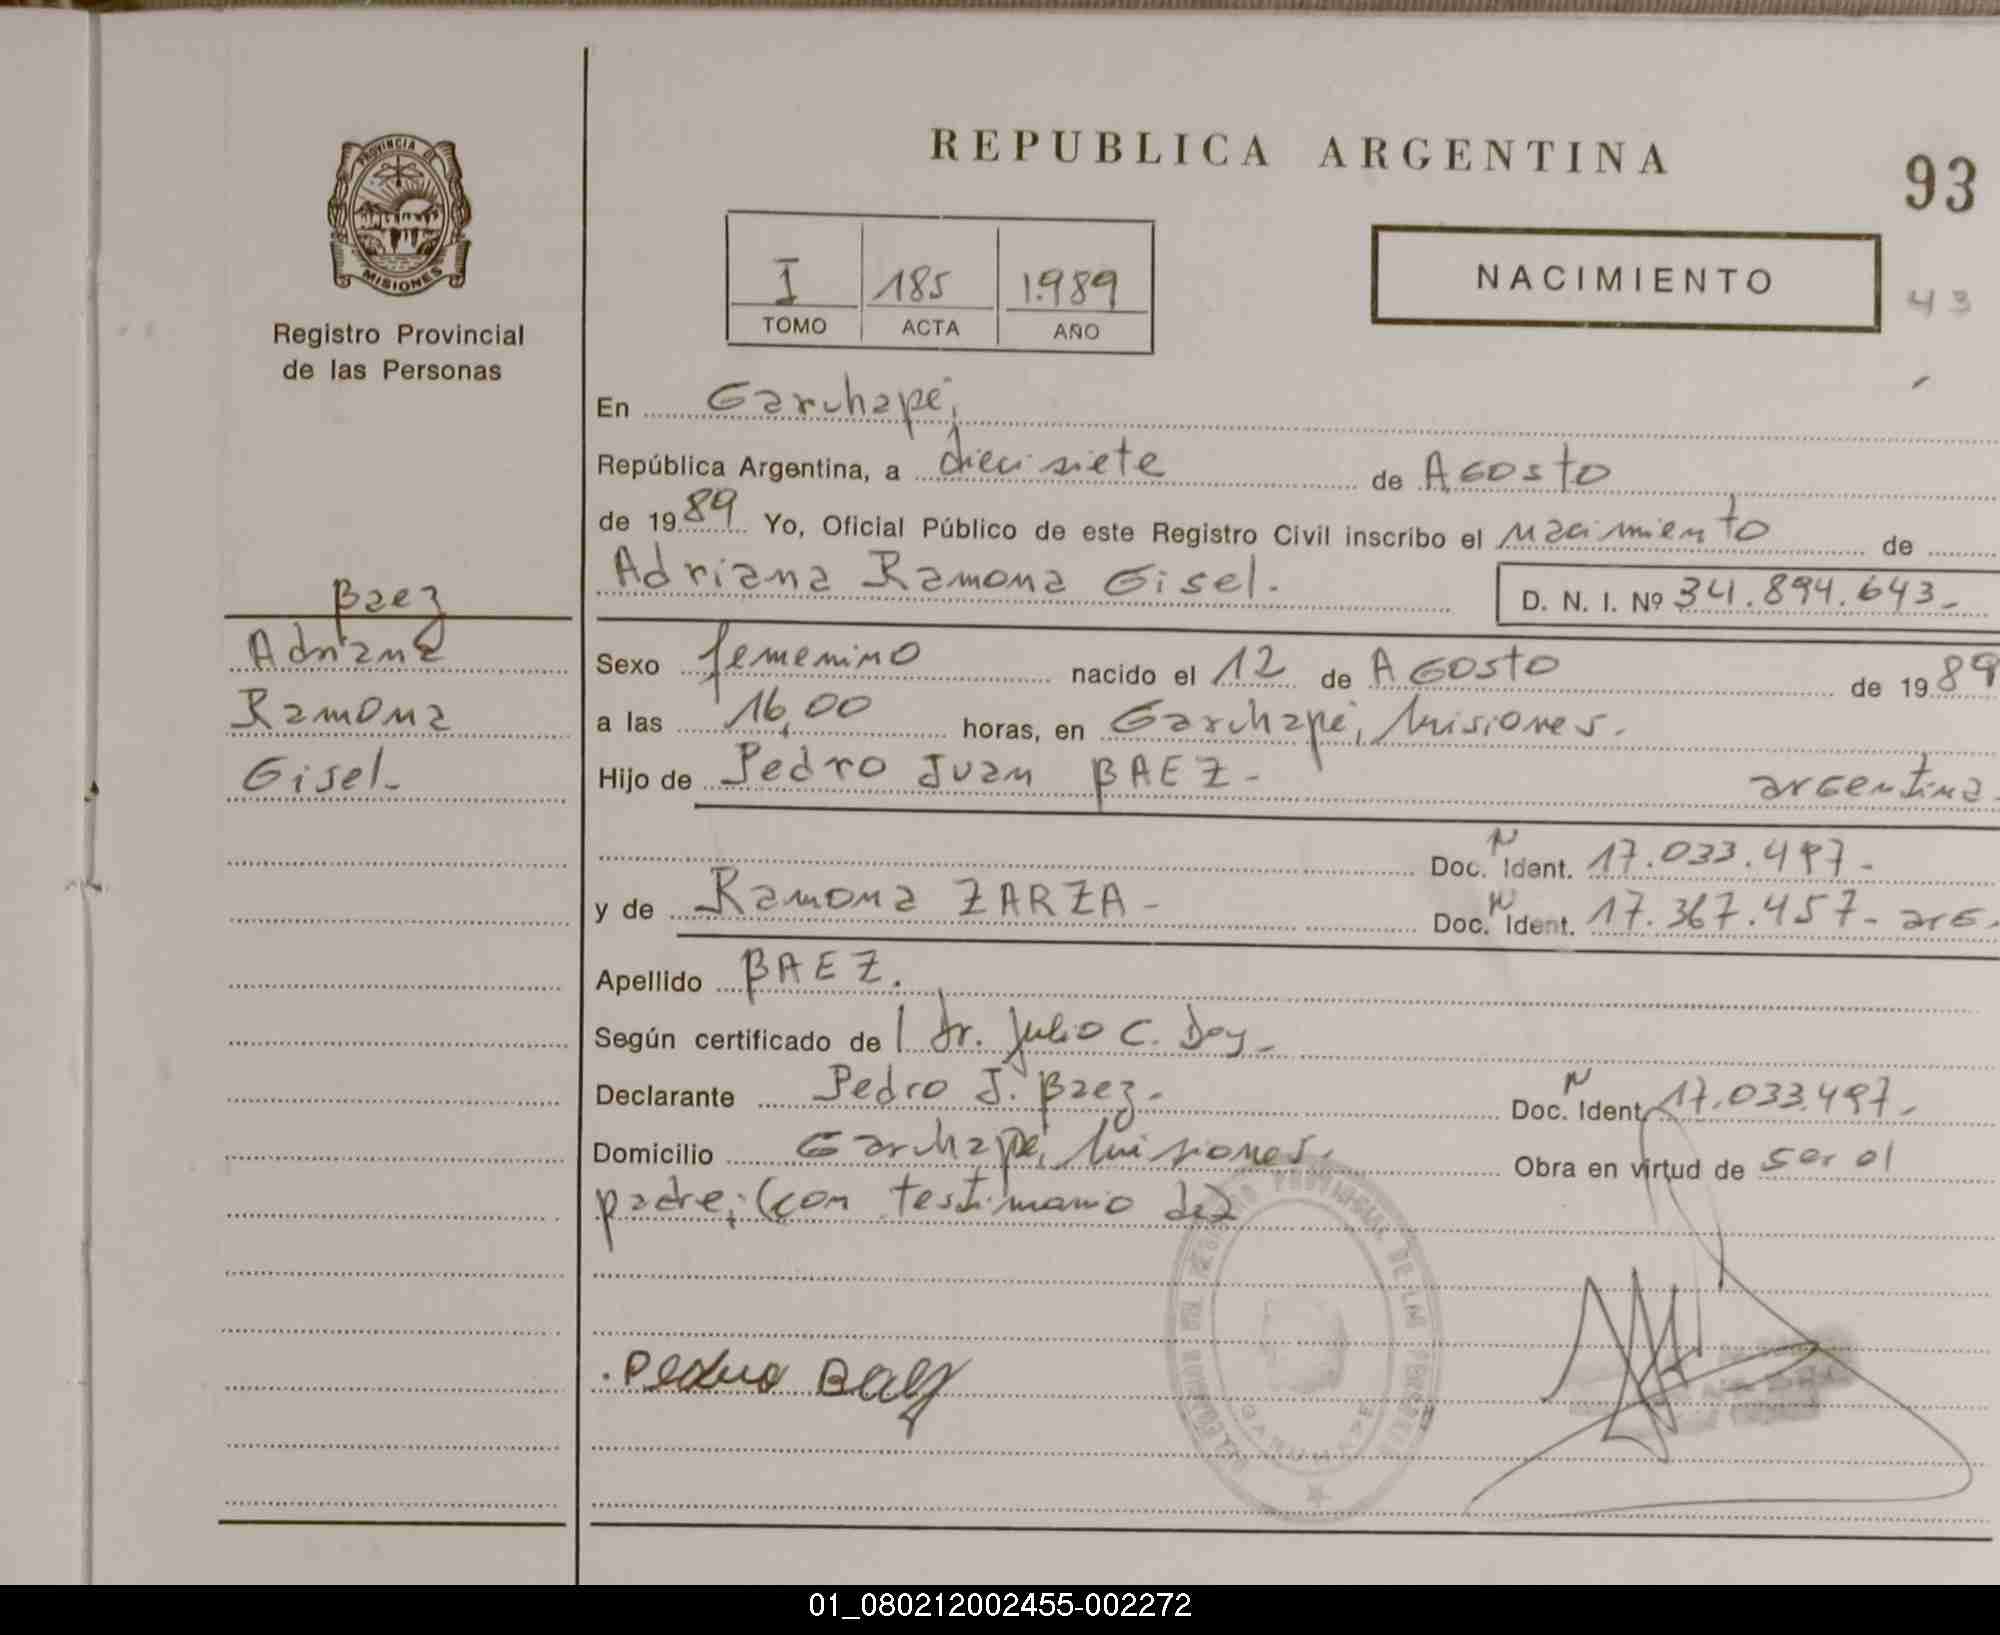 REPUBLICA ARGENTINA
93
PROVINCIA DE
MISIONES
Registro Provincial
de las Personas
I 185 1.989
TOMO ACTA AÑO
NACIMIENTO
43
En Garuhapé,
República Argentina, a diecisiete de Agosto
de 1989 Yo, Oficial Público de este Registro Civil inscribo el nacimiento de
Adriana Ramona Gisel.
D. N. I. Nº 34.894.643-
Baez
Adriana
Ramona
Gisel-
Sexo femenino nacido el 12 de Agosto de 1989
a las 16,00 horas, en Garuhapé, Misiones.
Hijo de Pedro Juan BAEZ- argentina-
Doc. N Ident. 17.033.497-
y de Ramona ZARZA- Doc. N Ident. 17.367.457- arg.
Apellido BAEZ.
Según certificado de Dr. Julio C. Doy-
Declarante Pedro J. Baez- Doc. N Ident. 17.033.497-
Domicilio Garuhapé, Misiones. Obra en virtud de ser el
padre, (con testimonio de)
Pedro Baez
REGISTRO PROVINCIAL DE LAS PERSONAS
GARUHAPE
01_080212002455-002272